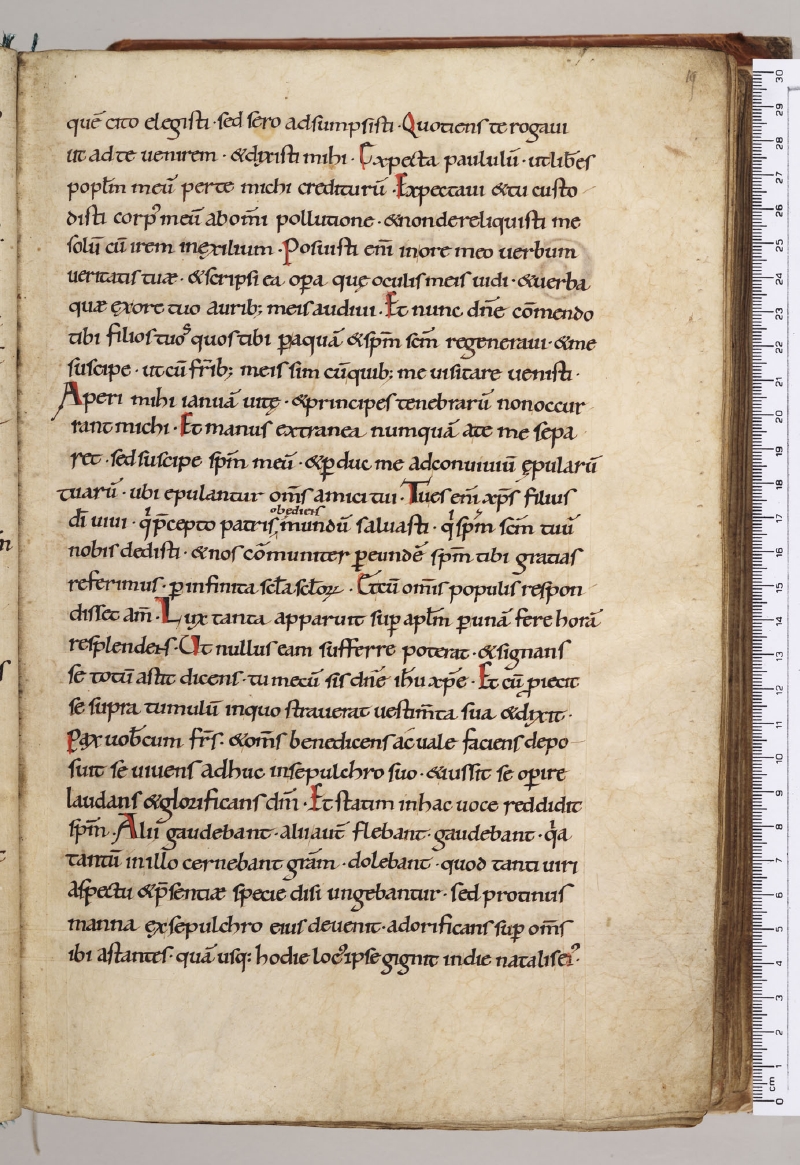 19
quē cito elegisti · sed sero adsumpsisti · Quotiens te rogaui
ut ad te uenirem · & dixisti mihi · Expecta paululū · ut lib̄es
popl̄m meū per te michi crediturū · Expectaui & tu custo
disti corpꝰ meū ab om̄i pollutione · & non dereliquisti me
solū cū irem in exilium · Posuisti em̄ in ore meo uerbum
ueritatis tuæ · & scripsi ea oꝑa quę oculis meis uidi · & uerba
quæ ęx ore tuo aurib; meis audiui · Et nunc dn̄e cōmendo
tibi filios tuoˢ quos tibi ꝑ aquā & sp̄m sc̄m regeneraui · & me
suscipe · ut cū fr̄ib; meis sim cū quib; me uisitare uenisti ·
Aperi mihi ianuā uitę · & principes tenebrarū non occur
rant michi · Et manus extranea numquā a te me sepa
ret · sed suscipe sp̄m meū · & ꝑduc me ad conuiuiū ępularū
tuarū · ubi epulantur om̄s amici tui · Tu es em̄ xp̄s filius
obediens
dī uiui · qⁱ p̄cepto patris, mundū saluasti · qⁱ sp̄m sc̄m tuū
nobis dedisti · & nos cōmuniter ꝑ eundē sp̄m tibi gratias
referimus · ꝑ infinita scl̄a scl̄oꝝ · Et cū om̄is populis respon
disset am̄ · Lux tanta apparuit suꝑ apl̄m ꝑ unā fere horā
resplendens · Ut nullus eam sufferre poterat · & signans
se totū astit dicens · tu mecū sis dn̄e ih̄u xp̄e · Et cū ꝓiecit
se supra tumulū in quo strauerat uestim̄ta sua & dixit ·
Pax uob̄cum fr̄s · & om̄s benedicens ac uale faciens depo
suit se uiuens adhuc in sepulchro suo · & iussit se oꝑire
laudans & glorificans dm̄ · Et statim in hac uoce reddidit
sp̄m · Alii gaudebant · alii aut̄ flebant · gaudebant · qⁱa
tantū in illo cernebant grām · dolebant · quod tanti uiri
aspectu & p̄sentiæ specie disi ungebantur · sed protinus
manna ęx sepulchro eius deuenit · adorificans suꝑ om̄s
ibi astantes · quā usq: hodie locꝰ ipse gignit in die natalis eiꝰ ·